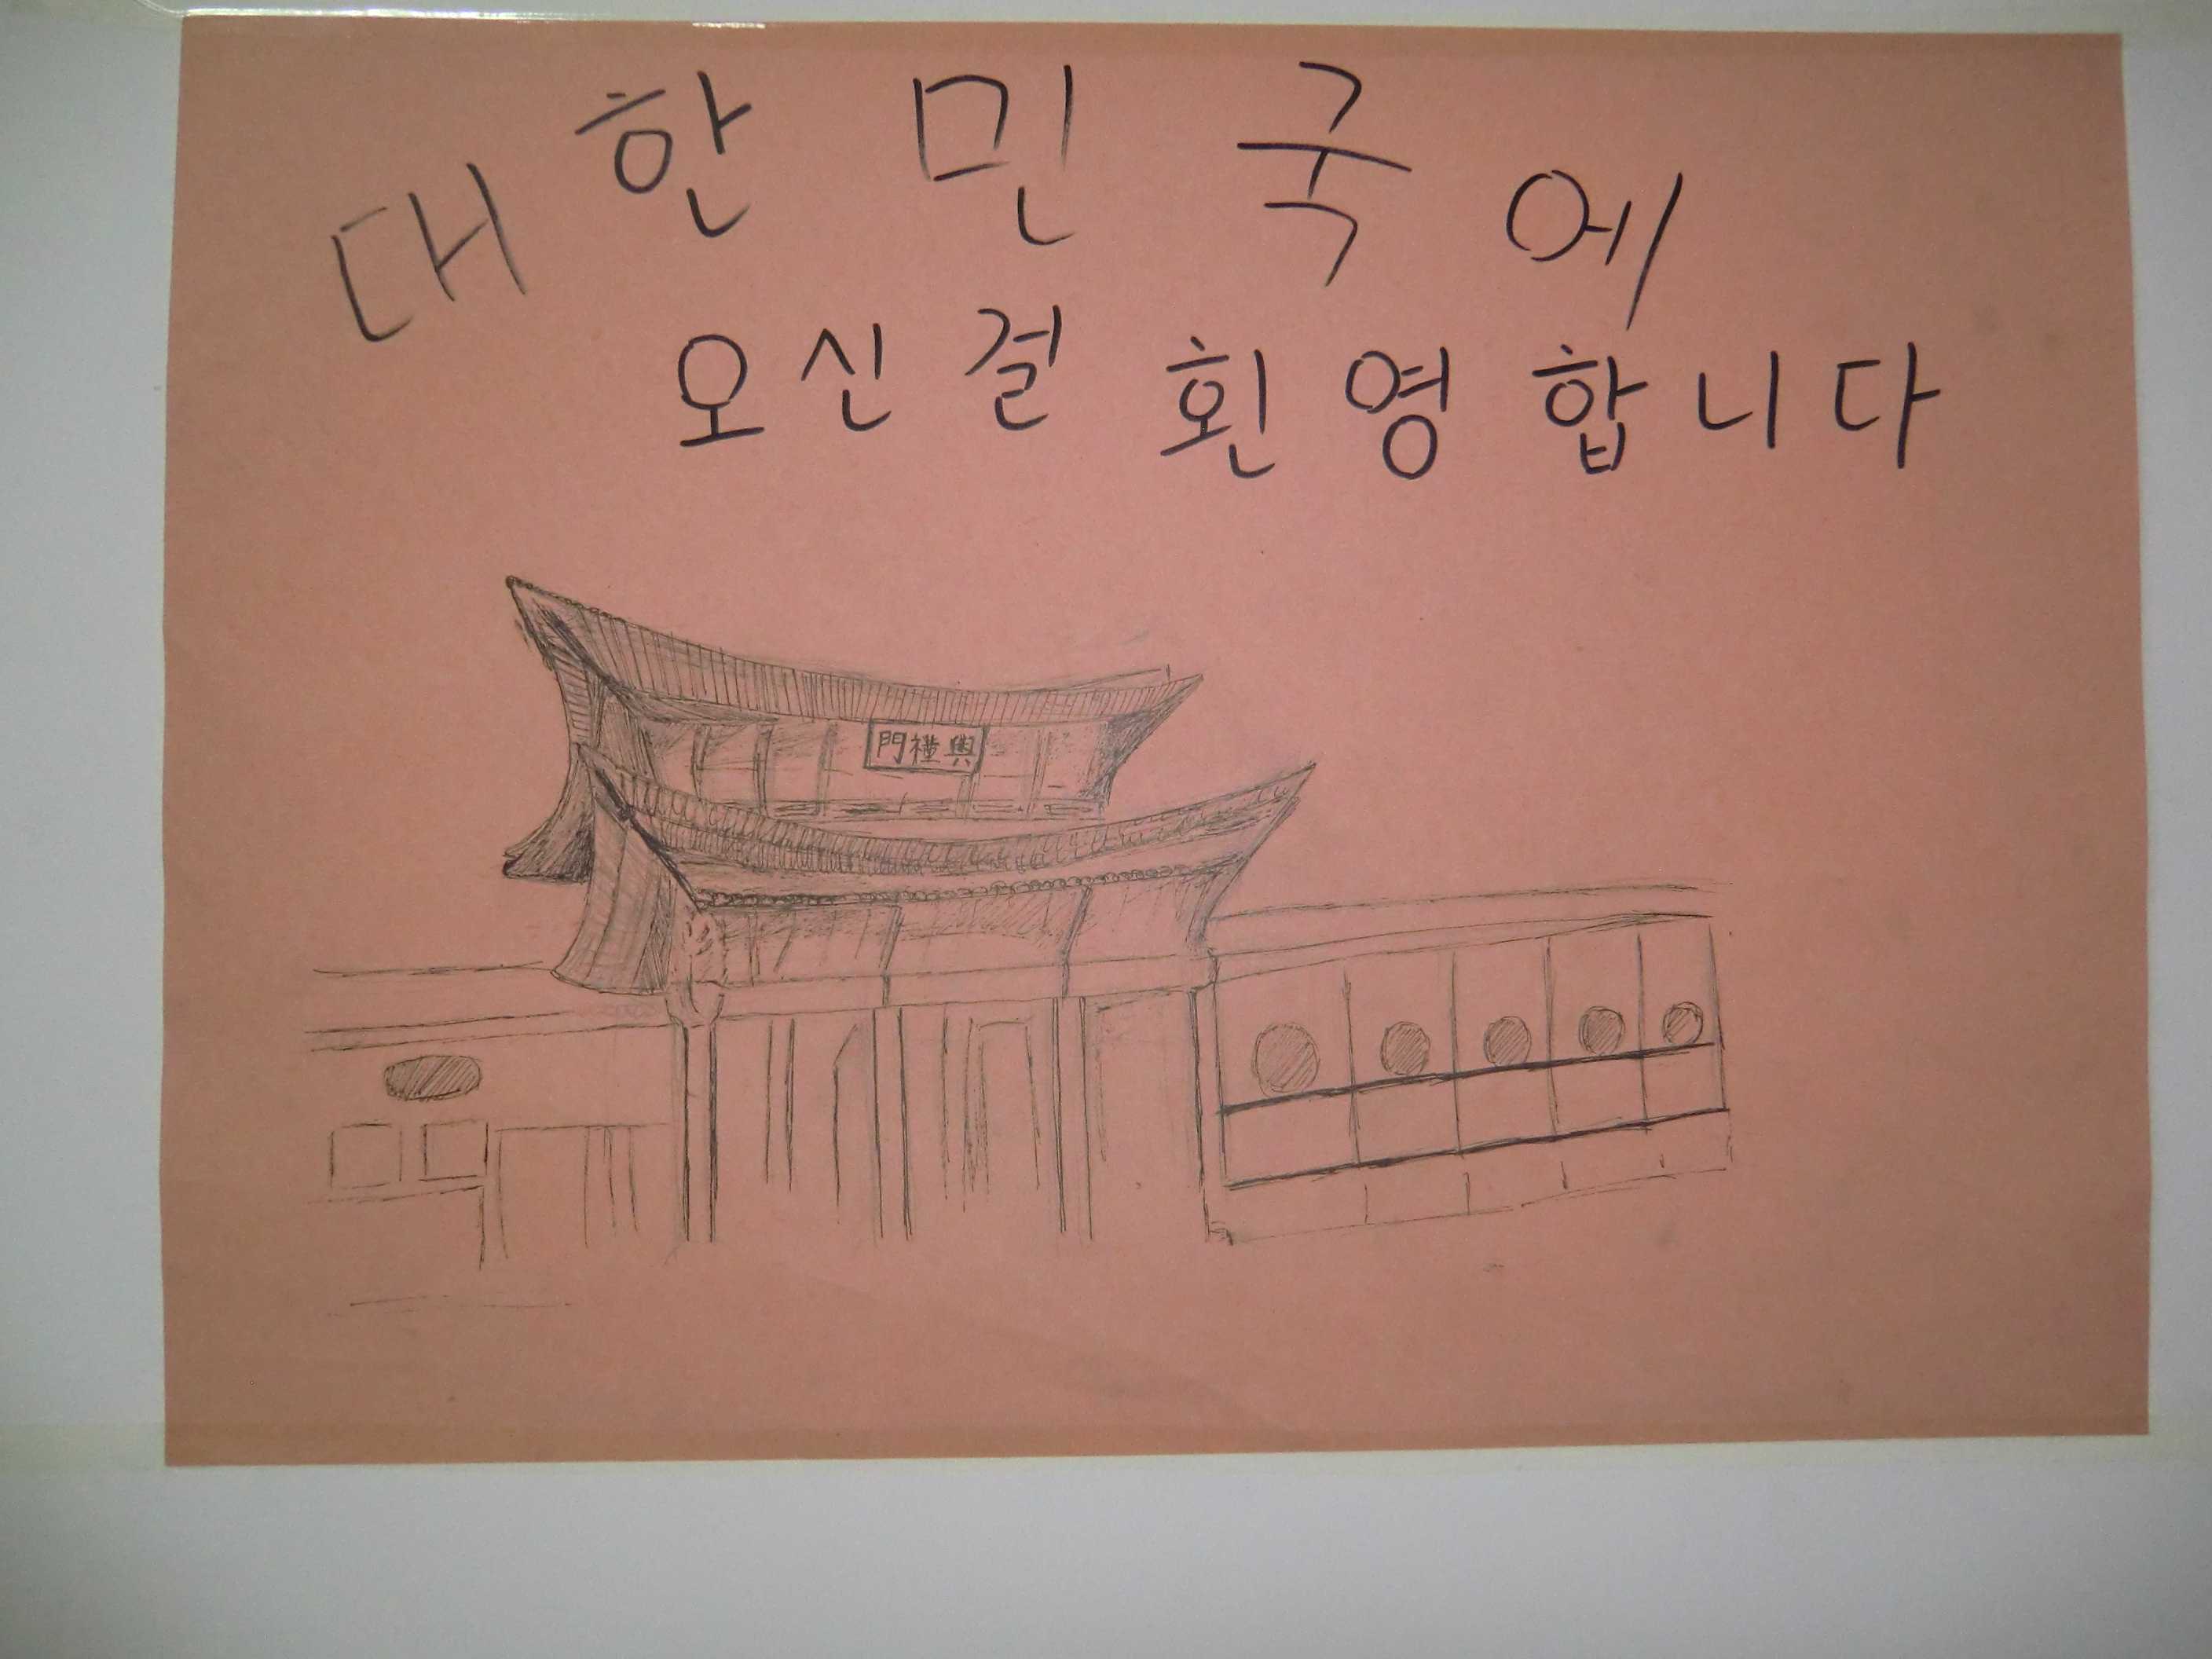 대한민국에
오신걸 횐영합니다
門禮興